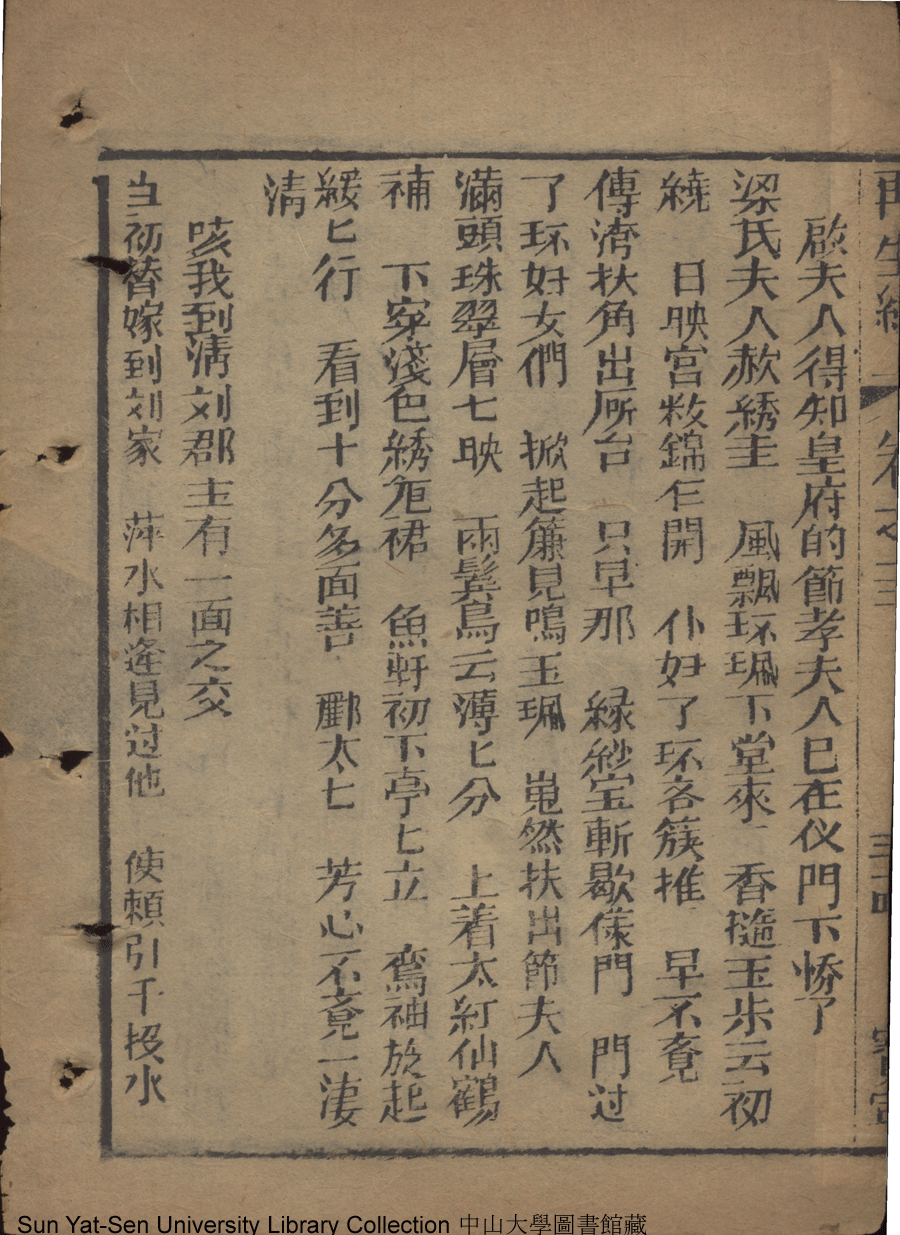 再生緣 卷之三
啟夫人得知皇府的節孝夫人巳在仪門下轿了
梁氏夫人赦綉圭 風飄环珮下堂來 香隨玉步云初
繞 日映宮粧錦乍開 仆妇了环各簇推 早不竟
傳濟扶角出所台 只早那 緑紗宝斬歇儀門 門过
了环妇女們 掀起簾見鳴玉珮 嵬然扶出節夫人
滿頭珠翠層七映 兩鬓烏云薄匕分 上着太紅仙鶴
補 下穿淺色綉裙 魚軒初下亭匕立 鸾袖放起
緩匕行 看到十分多面善 酈太七 芳心不竟一凄
清
咳我到清刘郡主有一面之交
当初替嫁到刘家 萍水相逢見过他 使頼引千投水
Sun Yat-Sen University Library Collection 中山大學圖書館藏